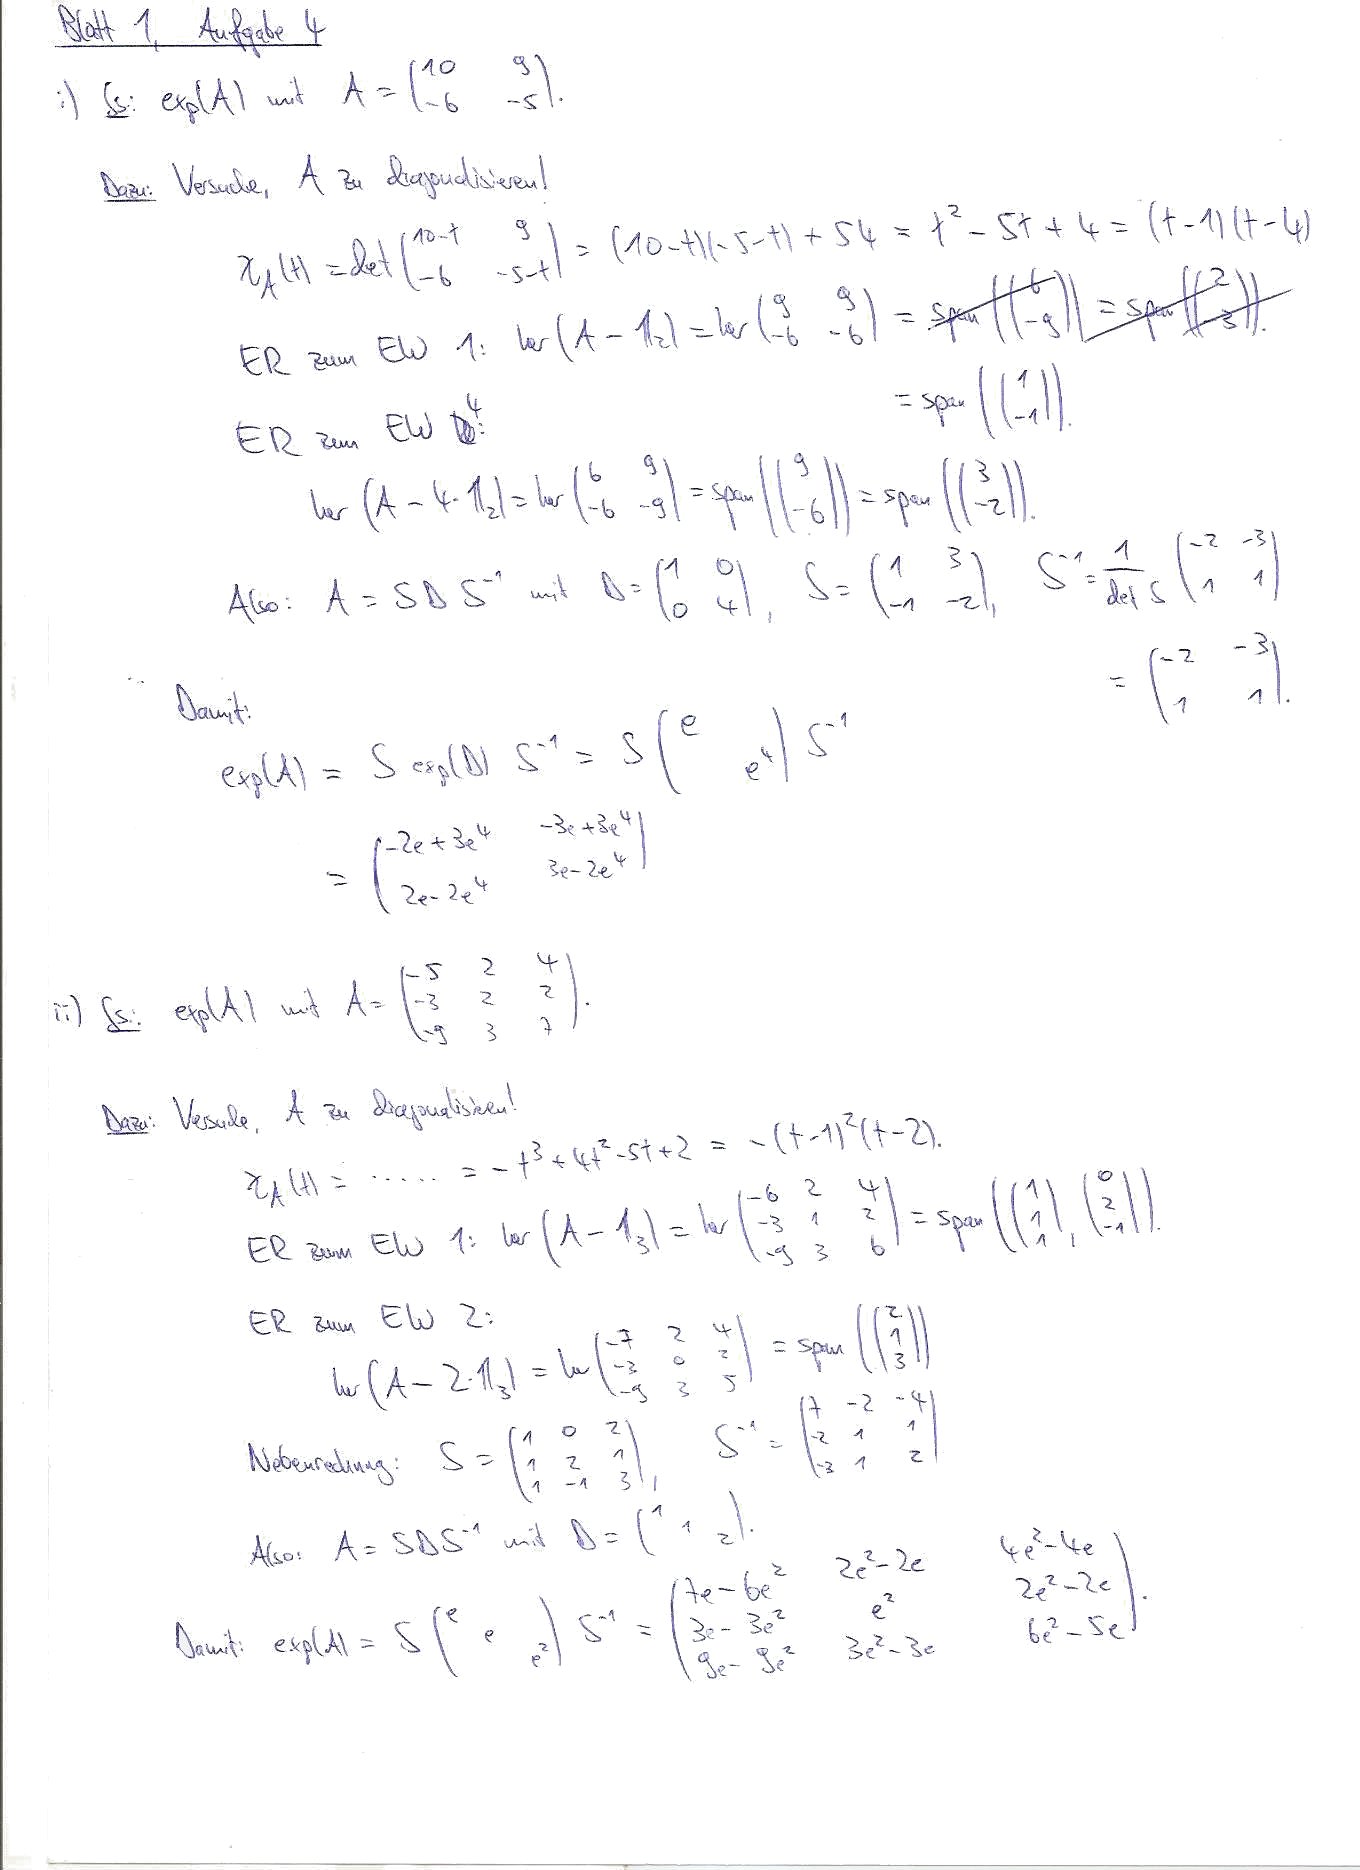 Blatt 1, Aufgabe 4
i) Gs: exp(A) mit A = (10 9; -6 -5).
Dazu: Versuche, A zu diagonalisieren!
χ_A(t) = det (10-t 9; -6 -5-t) = (10-t)(-5-t) + 54 = t² - 5t + 4 = (t-1)(t-4)
ER zum EW 1: ker (A - 𝟙₂) = ker (9 9; -6 -6) = span ((6; -9)) = span ((2; 3)).
= span ((1; -1)).
ER zum EW 4:
ker (A - 4·𝟙₂) = ker (6 9; -6 -9) = span ((9; -6)) = span ((3; -2)).
Also: A = SDS⁻¹ mit D = (1 0; 0 4), S = (1 3; -1 -2), S⁻¹ = 1/det S (-2 -3; 1 1)
= (-2 -3; 1 1).
Damit:
exp(A) = S exp(D) S⁻¹ = S (e  ;  e⁴) S⁻¹
= (-2e+3e⁴ -3e+3e⁴; 2e-2e⁴ 3e-2e⁴)
ii) Gs: exp(A) mit A = (-5 2 4; -3 2 2; -9 3 7).
Dazu: Versuche, A zu diagonalisieren!
χ_A(t) = ...... = -t³+4t²-5t+2 = -(t-1)²(t-2).
ER zum EW 1: ker (A - 𝟙₃) = ker (-6 2 4; -3 1 2; -9 3 6) = span ((1; 1; 1), (0; 2; -1)).
ER zum EW 2:
ker (A - 2·𝟙₃) = ker (-7 2 4; -3 0 2; -9 3 5) = span ((2; 1; 3))
Nebenrechnung: S = (1 0 2; 1 2 1; 1 -1 3), S⁻¹ = (7 -2 -4; -2 1 1; -3 1 2)
Also: A = SDS⁻¹ mit D = (1 1 2).
Damit: exp(A) = S (e e e²) S⁻¹ = (7e-6e² 2e²-2e 4e²-4e; 3e-3e² e² 2e²-2e; 9e-9e² 3e²-3e 6e²-5e).